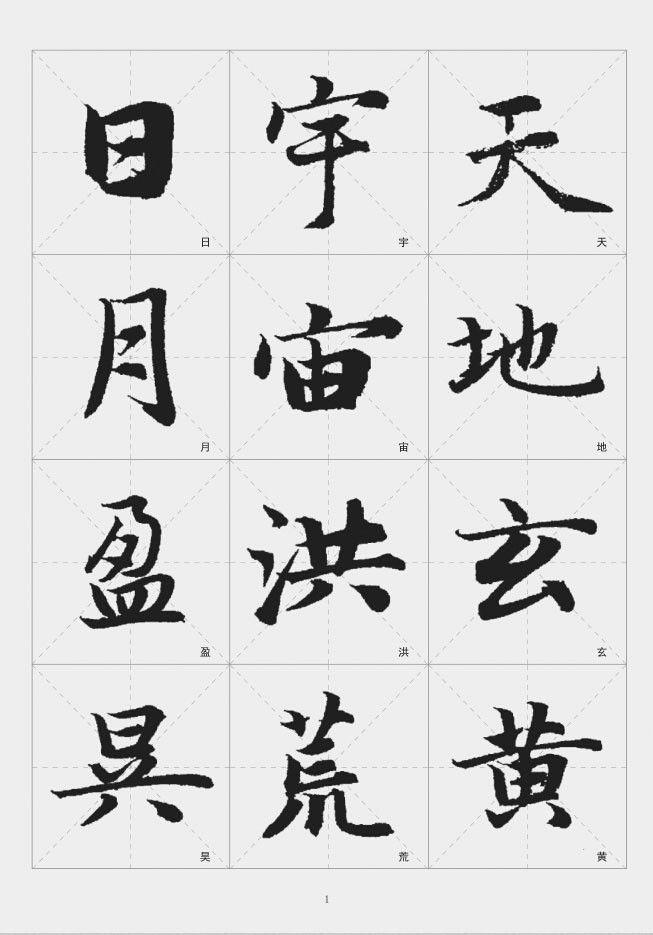 天地玄黄
天地玄黄
宇宙洪荒
宇宙洪荒
日月盈昃
日月盈昃
1